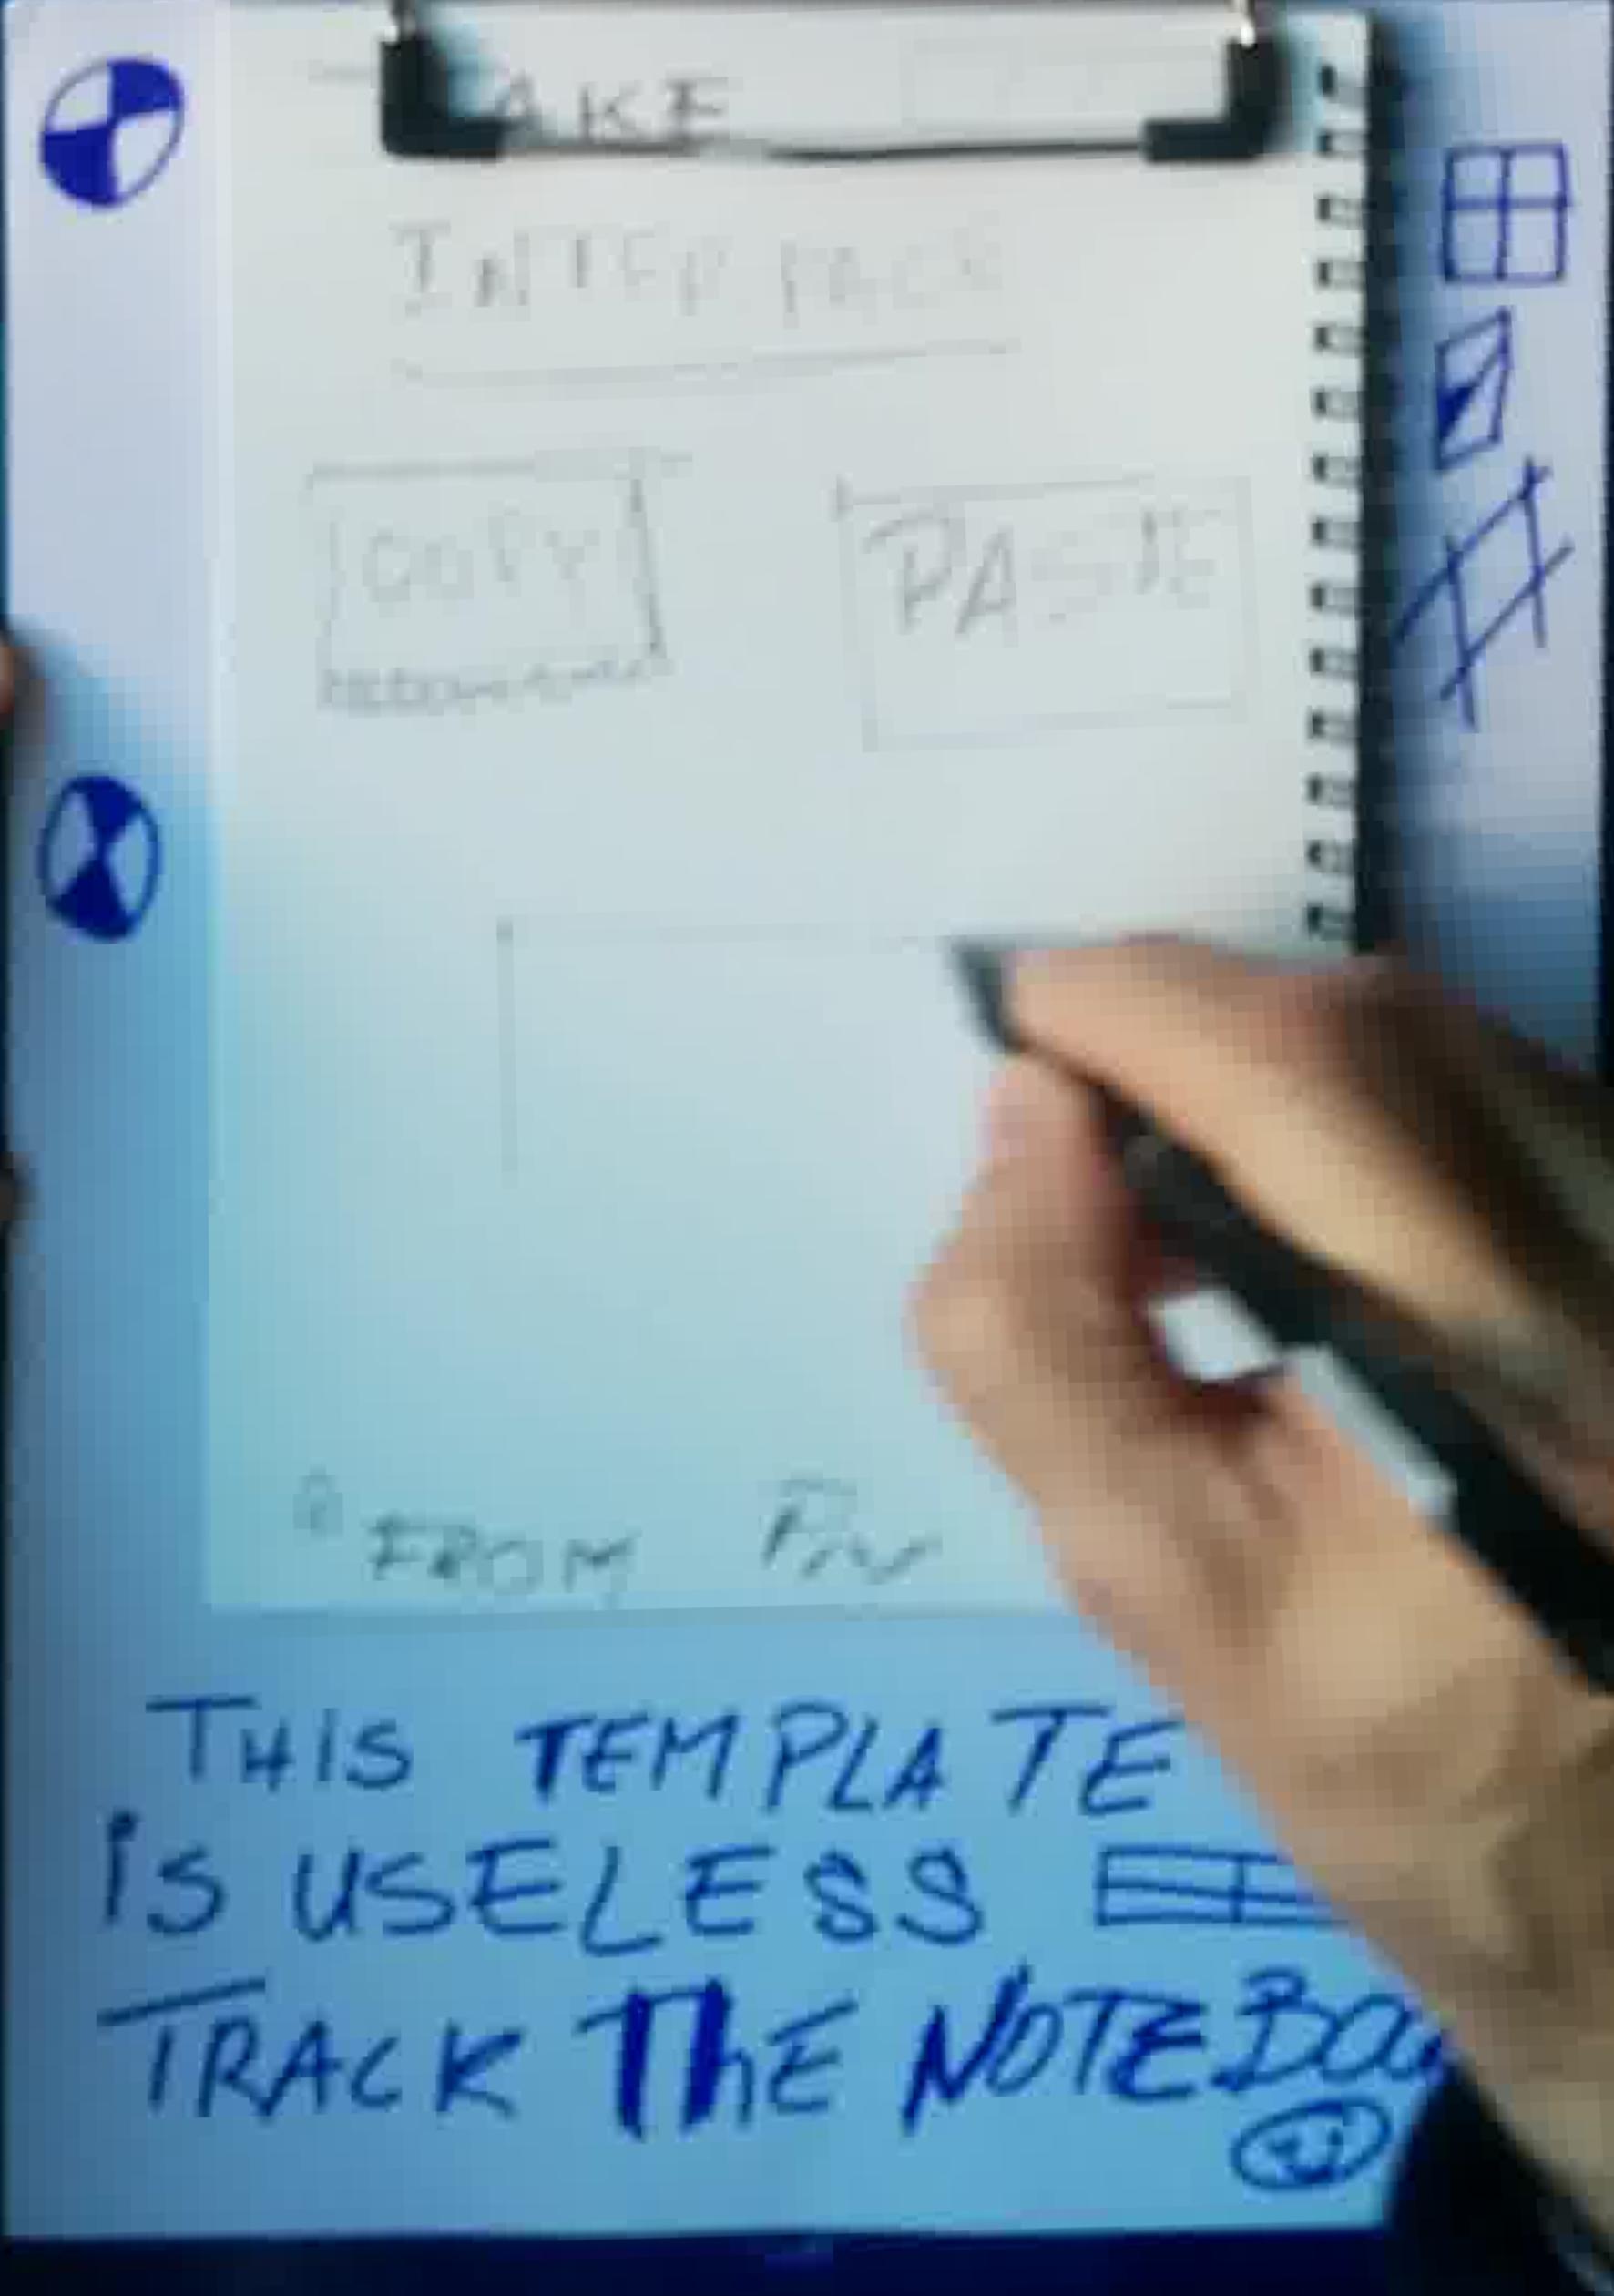 AKE
INTERFACE
COPY PASTE
FROM
THIS TEMPLATE
iS USELESS
TRACK ThE NOTEBOO